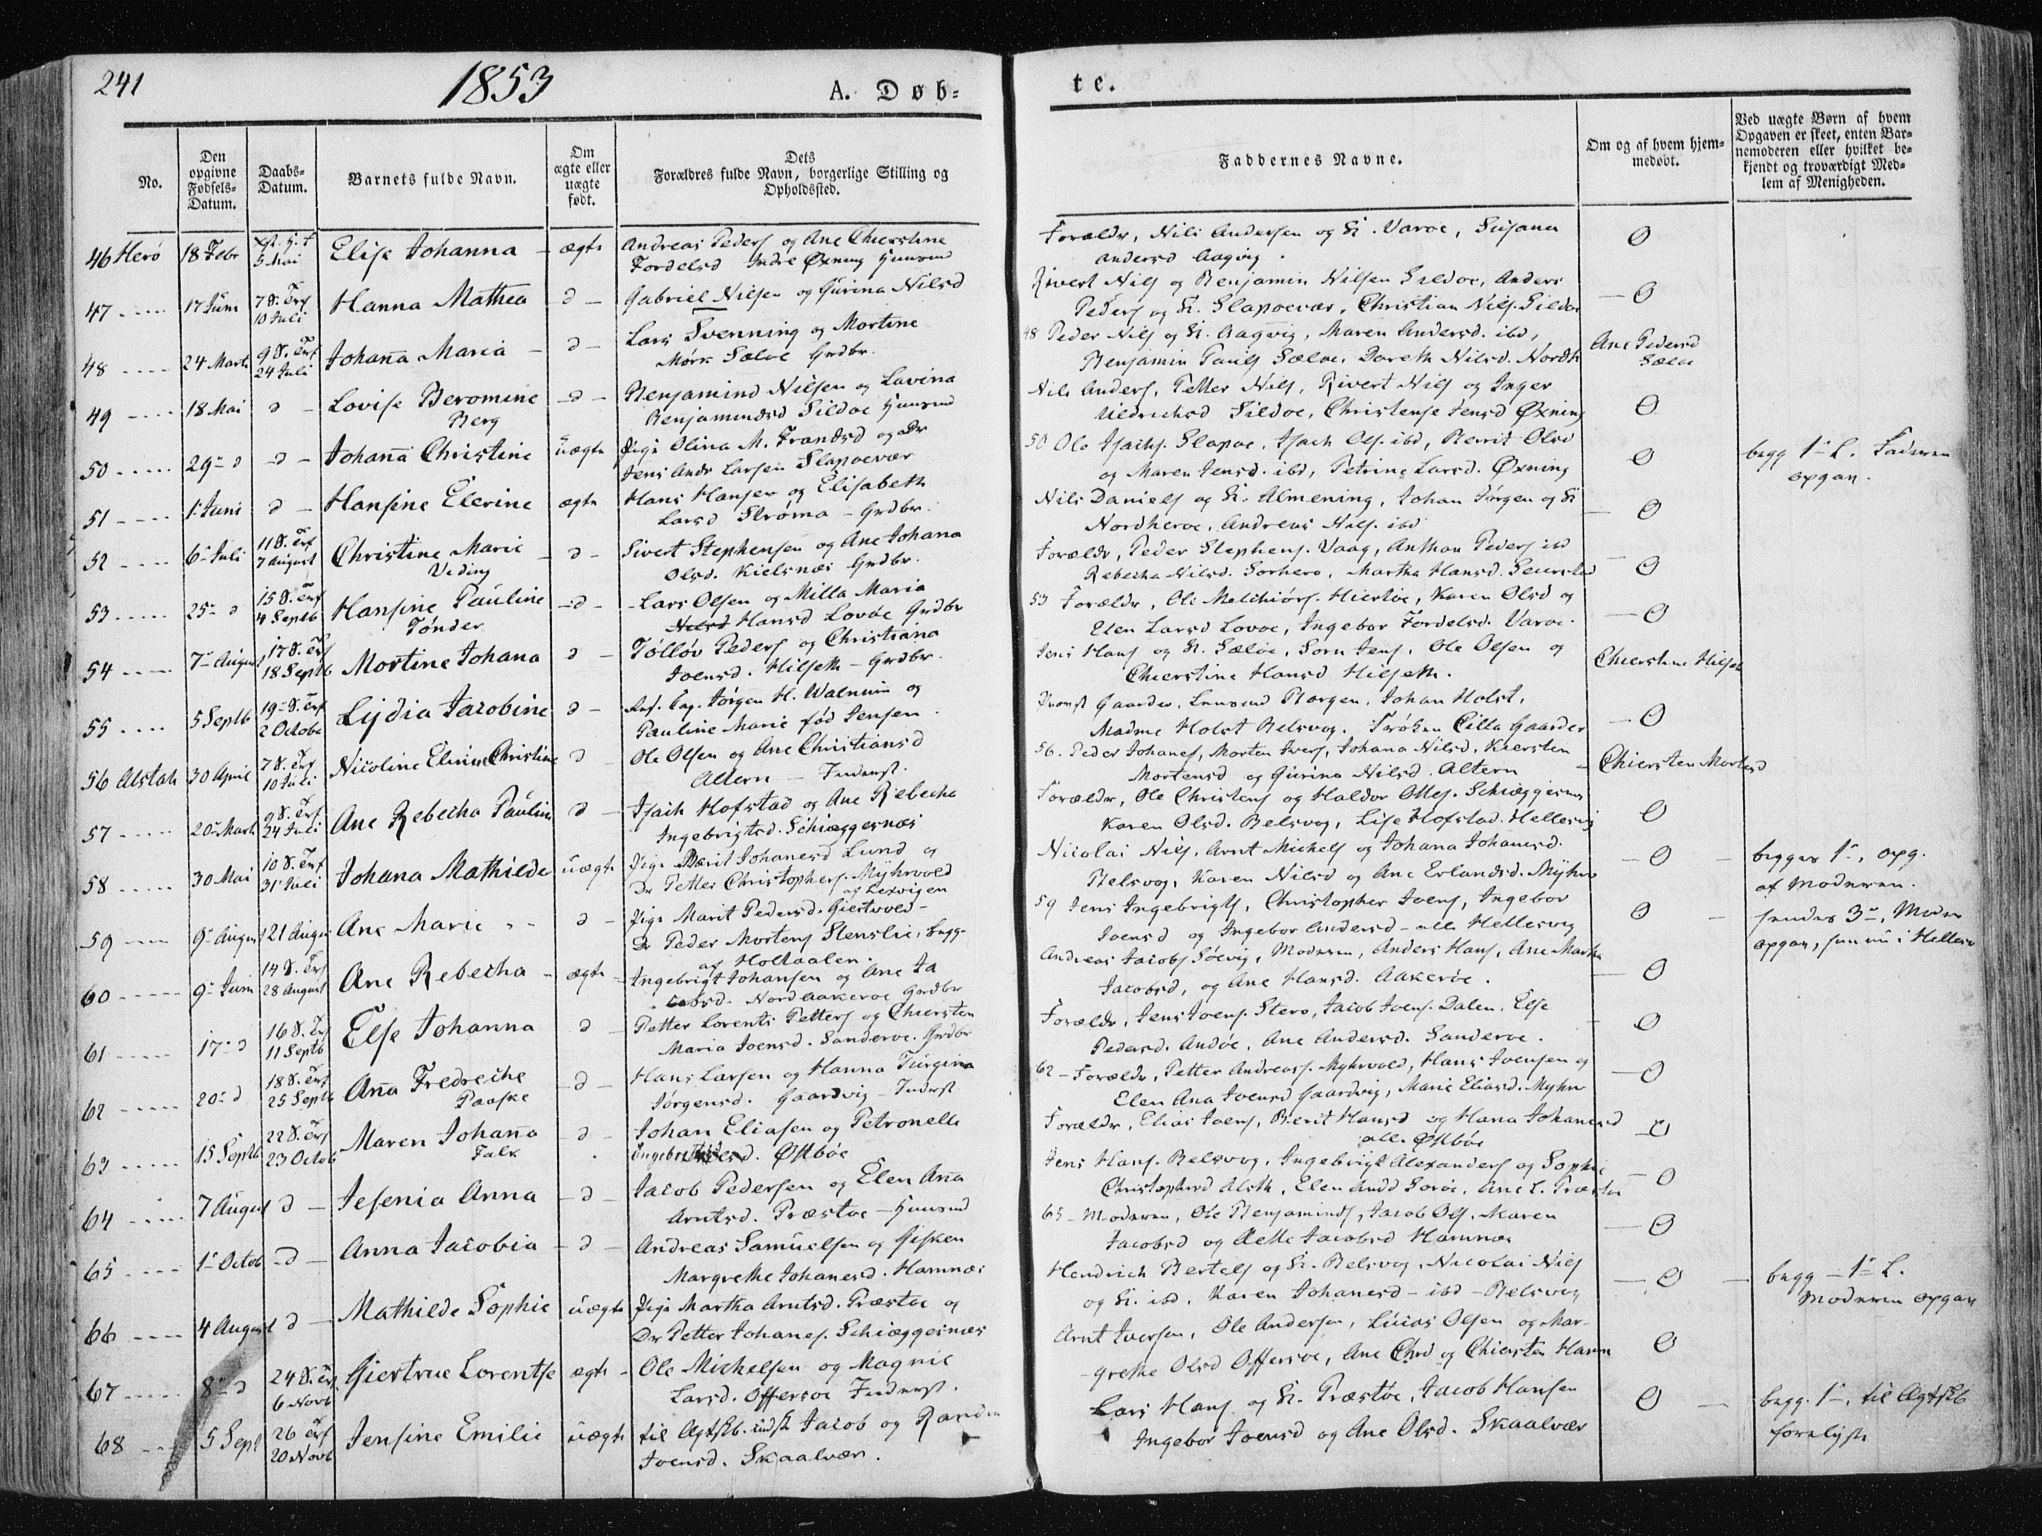 241
1853
A. Døb-
te.
No.
Den opgivne Fødsels-Datum.
Daabs-Datum.
Barnets fulde Navn.
Om ægte eller uægte født.
Dets Forældres fulde Navn, borgerlige Stilling og Opholdssted.
Faddernes Navne.
Om og af hvem hjem-medøbt.
Ved uægte Børn af hvem Opgaven er skeet, enten Bar-nemoderen eller hvilket be-kjendt og troværdigt Med-lem af Menigheden.
46 Herö 18 Febr 5 Mai Elise Johanna - ægte Andreas Peders og Ane Chierstine
Fordelsd Indre Øxning Huusmd
Forældr, Nils Andersen og K. Varöe, Susana
Andersd Aagvig. 0
47 17 Juni 7 S. Trf 10 Juli Hanna Mathea d - Gabriel Nilsen og Gurina Nilsd
Sivert Nils og Benjamin Nilsen Sildöe, Anders
Peders og K. Slapoevær, Christian Nils. Sildöe 0
48 24 Marts 9 S. Trf 24 Juli Johana Maria - d - Lars Svenning og Mortine
Mørk Sælöe Grdbr.
48 Peder Nils og K. Aagvig, Maren Andersd. ibd,
Benjamin Pauls Sælöe, Doreth Nilsd. Nordh
Ane Pedersd
Sælöe
49 18 Mai d - Lovise Beromine
Berg - d - Benjamind Nilsen og Lavina
Benjamindsd Sildöe Huusmd
Nils Anders, Petter Nils, Sivert Nils og Inger
Uldrichsd Sildoe, Christense Jensd Øxning 0
50 29 d - d - Johana Christine uægte Pige Olina M. Frandsd og Dr
Jens Andr Larsen Slapoevær
50 Ole Isachs. Slapoe, Isach Ols. ibd, Berit Olsd
og Maren Jensd. ibd, Petrine Larsd. Øxning 0
begg 1- L. Faderen
opgav.
51 1 Juni d - Hansine Elerine ægte Hans Hansen og Elisabeth
Larsd Strøma - Grdbr.
Nils Daniels og K. Almening, Johan Jørgen og K
Nordheroe, Andreas Nils. ibd 0
52 6 Juli 11 S. Trf 7 August Christine Marie
Veding - d - Sivert Stephensen og Ane Johana
Olsd. Kielsnæs Grdbr.
Forældr, Peder Stephens. Vaag, Anthon Peders ibd
Rebecha Nilsd. Sorhero, Martha Hansd. 0
53 25 d 15 S. Trf 4 Septb Hansine Pauline
Tönder - d - Lars Olsen og Milla Maria
Hansd Lovöe Grdbr
53 Forældr, Ole Melchiörs. Hiertöe, Karen Olsd og
Elen Larsd Lovoe, Ingebor Fordelsd. Varoe. 0
54 7 August 17 S. Trf 18 Septb Mortine Johana d - Töllöv Peders og Christiana
Joensd. Hilseth - Grdbr.
Jens Hans og K. Sælöe, Sorn Jens, Ole Olsen og
Chierstine Hansd Hilseth.
Chierstine Hilseth
55 5 Septb 19 S. Trf 2 Octobr Lydia Jacobine d - Jørgen H. Walnum og
Pauline Marie fød Jensen.
Provst Gaarder, Borgen, Johan Holst,
Madme Holst Belsvog. Frøken Cilla Gaarder 0
56 Alstah 30 April 7 S. Trf 10 Juli Nicoline Elvine Christine d - Ole Olsen og Ane Christiansd
Altern - Inderst.
56. Peder Johanes, Morten Ivers, Johana Nilsd, Kiersten
Mortensd og Gurina Nilsd. Altern
Chiersten Mortesd
57 20 Marts 9 S. Trf 24 Juli Ane Rebecha Pauline d - Isach Hofstad og Ane Rebecha
Ingebrigtsd. Schiæggesnæs
Forældr, Ole Christens og Haldor Olles. Schiæggesnæs
Karen Olsd. Belsvog, Lise Hofstad. Hellesvig 0
58 30 Mai 10 S. Trf 31 Juli Johana Mathilde uægte Pige Berit Johanesd Lund og
Dr Petter Christophers. Myhrvold
af Lexvigen
Nicolai Nils, Arnt Michels og Johana Johanesd.
Belsvog, Karen Nilsd og Ane Erlandsd. Myhre 0
begges 1-, opg.
af Moderen.
59 9 August 21 August Ane Marie d - Pige Marit Pedersd. Giertvold -
Dr Peder Mortens Stenslie, begg-
af Holtaalen.
59 Jens Ingebrigts, Christopher Joens, Ingebor
Joensd og Ingebor Andersd - alle Hellesvig 0
3-, Moder
opgav, i Hellesv
60 9 Juni 14 S. Trf 28 August Ane Rebecha - ægte Ingebrigt Johansen og Ane Ja
cobsd. Nord Aakeroe Grdbr
Andreas Jacobs Söevig, Moderen, Anders Hans, Ane Martha
Jacobsd, og Ane Hansd. Aakeröe. 0
61 17 d 16 S. Trf 11 Septb Else Johanna d - Petter Lorents Petters og Chiersten
Maria Joensd. Sanderoe. Grdbr
Forældr, Jens Joens. Stero, Jacob Joens. Dalen, Else
Pedersd. Andöe, Ane Andersd. Sanderoe. 0
62 20 d 18 S. Trf 25 Septb Ana Fredreche
Paaske - d - Hans Larsen og Hanna Jurgina
Jörgensd. Gaardvig - Inderst
62 - Forældr, Petter Andreass. Myhrvold, Hans Joensen og
Elen Ana Joensd Gaardvig, Marie Eliasd. Myhre 0
63 15 Septb 22 S. Trf 23 Octob Maren Johana
Falk - d - Johan Eliasen og Petronelle
Østböe
Forældr, Elias Joens, Berit Hansd og Hana Johanesd
alle Østböe 0
64 7 August d - Jesenia Anna - d - Jacob Pedersen og Elen Ana
Arntsd. Præstöe - Huusmd
Jens Hans. Belsvog, Ingebrigt Alexanders og Sophie
Christophersd Alsth, Elen Andd Soröe, Ane L. Præstöe 0
65 1 Octob d - Anna Jacobia - d - Andreas Samuelsen og Gisken
Margrethe Johanesd. Hamnæs
65 - Moderen, Ole Benjamins, Jacob Ols. Maren
Jacobsd og Aette Jacobsd Hamnæs 0
66 4 August d - Mathilde Sophie uægte Pige Martha Arntsd. Præstöe og
Dr Petter Johanes. Schiæggesnæs
Hendrich Bertels og K. Belsvog, Nicolai Nils
og K. ibd, Karen Johanesd - ibd - Belsvog 0
begg - 1- L.
Moderen opgav
67 8 d 24 S. Trf 6 Novb Giertrue Lorentse ægte - Ole Michelsen og Magnil
Larsd. Offersoe Inderst.
Arnt Iversen, Ole Andersen, Lucas Olsen og Mar-
grethe Olsd Offersoe, Ane Chrd og Chiersten Hamn 0
68 5 Sept 26 Trf 20 Novb Jensine Emilie uægte til Ægtskb. indst Jacob og Randi
Joensd. Skaalvær.
Lars Hans og K. Præstöe, Jacob Hansen
Ingebor Joensd og Ane Olsd. Skaalvær 0
begg. 1-, til Ægtskb
forelyste